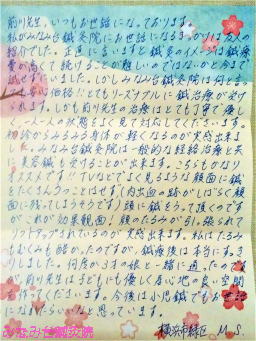 前川先生、いつもお世話になっております。
私がみなみ台鍼灸院にお世話になるきっかけは友人の
紹介でした。正直に言いますと鍼灸のイメージは鍼療
費が高くて続けることが難しいのではないかと今まで
試せずにいました。しかしみなみ台鍼灸院は何と言っ
ても安い価格!!とてもリーズナブルに鍼治療が受け
られます。しかも前川先生の治療はとても丁寧で優しく
一人一人の状態をよく見て対応してくださいます。
初診からみるみる身体が軽くなるのが実感出来まし
た。みなみ台鍼灸院は一般的な経絡治療と共
に美容鍼も受けることが出来ます。こちらもかなり
オススメです!!TVなどでよく見るような顔面に鍼
をたくさんうつことはせず(内出血の跡がしばらく顔
面に残ってしまうそうです)頭に鍼をうって頂くのです
が、これが効果覿面!顔のたるみが引っ張られて
リフトアップされているのが実感出来ます。私はたるみ
もむくみも酷かったのですが、鍼療後は本当にすっき
りしました。何度か3才の娘と一緒に通ったのです
が、前川先生は子どもにも優しく居心地の良い空間
を作ってくださいます。今後は小児鍼でもお世話
になりたいなと思っています。
横浜市緑区 M.S.
みなみ台鍼灸院